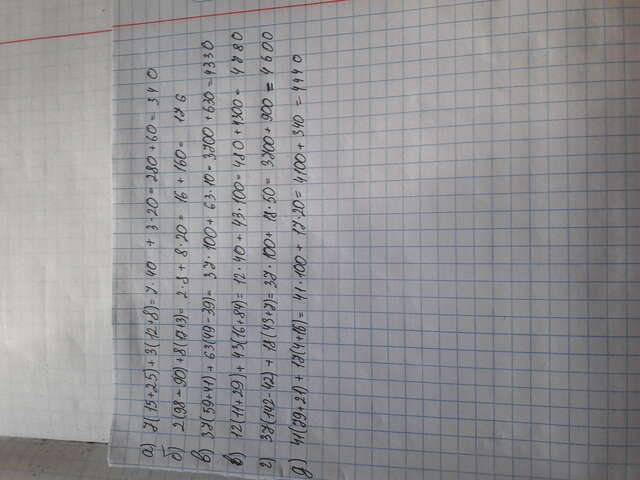 а) 7(15+25)+3(12+8)=7·40 +3·20=280+60=340
б) 2(98-90)+8(17+3)=2·8+8·20=16+160=176
в) 37(59+41)+63(49-39)=37·100+63·10=3700+630=4330
в) 12(11+29)+43(16+84)=12·40+43·100=480+4300=4780
г) 37(142-42)+18(43+7)=37·100+18·50=3700+900=4600
д) 41(79+21)+17(4+16)=41·100+17·20=4100+340=4440